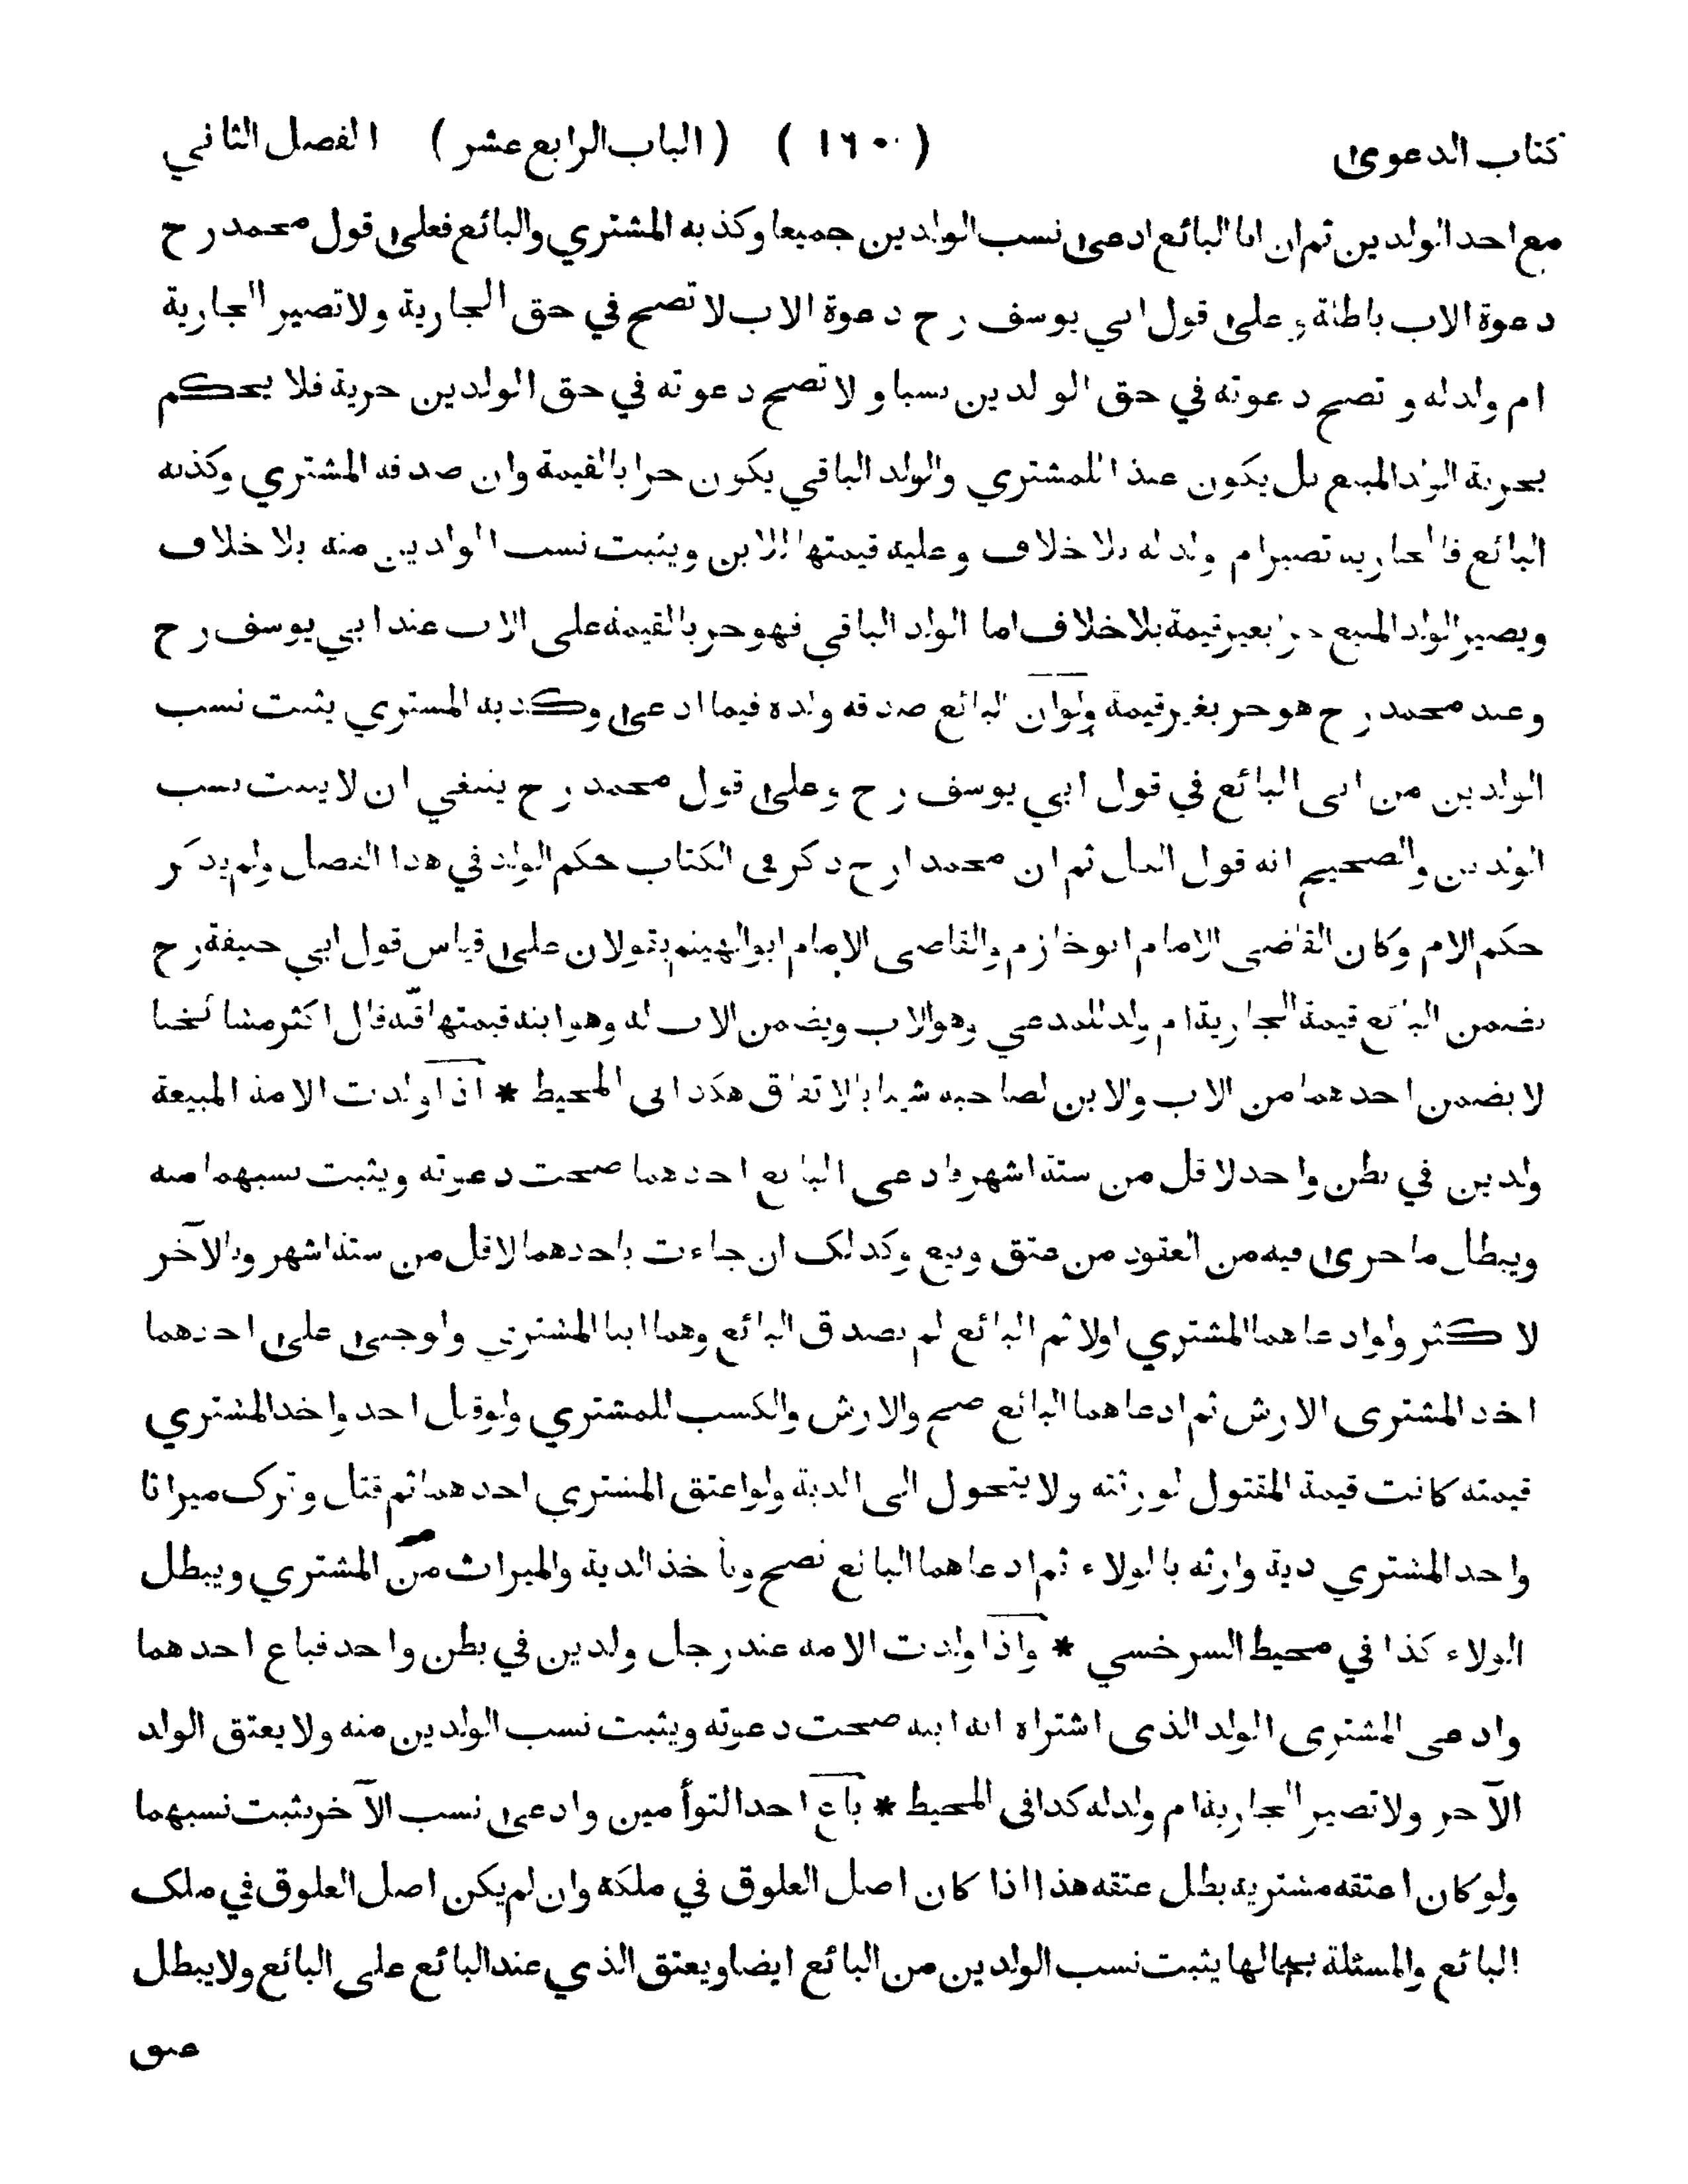 كتاب الدعوى (١٦٠) (الباب الرابع عشر) الفصل الثاني
مع احد الولدين ثم ان ابا البائع ادعى نسب الولدين جميعا وكذبه المشتري والبائع فعلى قول محمد رح
دعوة الاب باطلة وعلى قول ابي يوسف رح دعوة الاب لا تصح في حق الجارية ولا تصير الجارية
ام ولد له وتصح دعوته في حق الولدين نسبا ولا تصح دعوته في حق الولدين حرية فلا يحكم
بحرية الولد المبيع بل يكون عبدا للمشتري والولد الباقي يكون حرا بالقيمة وان صدقه المشتري وكذبه
البائع فالجارية تصير ام ولد له بلا خلاف وعليه قيمتها للابن ويثبت نسب الولدين منه بلا خلاف
ويصير الولد المبيع حرا بغير قيمة بلا خلاف اما الولد الباقي فهو حر بالقيمة على الاب عند ابي يوسف رح
وعند محمد رح هو حر بغير قيمة ولو ان البائع صدقه ولده فيما ادعى وكذبه المشتري يثبت نسب
الولدين من ابي البائع في قول ابي يوسف رح وعلى قول محمد رح ينبغي ان لا يثبت نسب
الولدين والصحيح انه قول الكل ثم ان محمدا رح ذكر في الكتاب حكم الولد في هذا الفصل ولم يذكر
حكم الام وكان القاضي الامام ابو خازم والقاضي الامام ابو الهيثم يقولان على قياس قول ابي حنيفة رح
يضمن البائع قيمة الجارية ام ولد للمدعي وهو الاب ويضمن الاب له وهو ابنه قيمتها قنة قال اكثر مشائخنا
لا يضمن احدهما من الاب والابن لصاحبه شيئا بالاتفاق هكذا في المحيط * اذا ولدت الامة المبيعة
ولدين في بطن واحد لاقل من ستة اشهر وادعى البائع احدهما صحت دعوته ويثبت نسبهما منه
ويبطل ما جرى فيه من العقود من عتق وبيع وكذلك ان جاءت باحدهما لاقل من ستة اشهر وبالآخر
لاكثر ولو ادعاهما المشتري اولا ثم البائع لم يصدق البائع وهما ابنا المشتري ولو جنى على احدهما
اخذ المشتري الارش ثم ادعاهما البائع صح والارش والكسب للمشتري ولو قتل احد واخذ المشتري
قيمته كانت قيمة المقتول لورثته ولا يتحول الى الدية ولو اعتق المشتري احدهما ثم قتل وترك ميراثا
واخذ المشتري دية وارثه بالولاء ثم ادعاهما البائع تصح ويأخذ الدية والميراث من المشتري ويبطل
الولاء كذا في محيط السرخسي * واذا ولدت الامه عند رجل ولدين في بطن واحد فباع احدهما
وادعى المشتري الولد الذي اشتراه انه ابنه صحت دعوته ويثبت نسب الولدين منه ولا يعتق الولد
الآخر ولا تصير الجارية ام ولد له كذا في المحيط * باع احد التوأمين وادعى نسب الآخر يثبت نسبهما
ولو كان اعتقه مشتريه بطل عتقه هذا اذا كان اصل العلوق في ملكه وان لم يكن اصل العلوق في ملك
البائع والمسئلة بحالها يثبت نسب الولدين من البائع ايضا ويعتق الذي عند البائع على البائع ولا يبطل
عتق